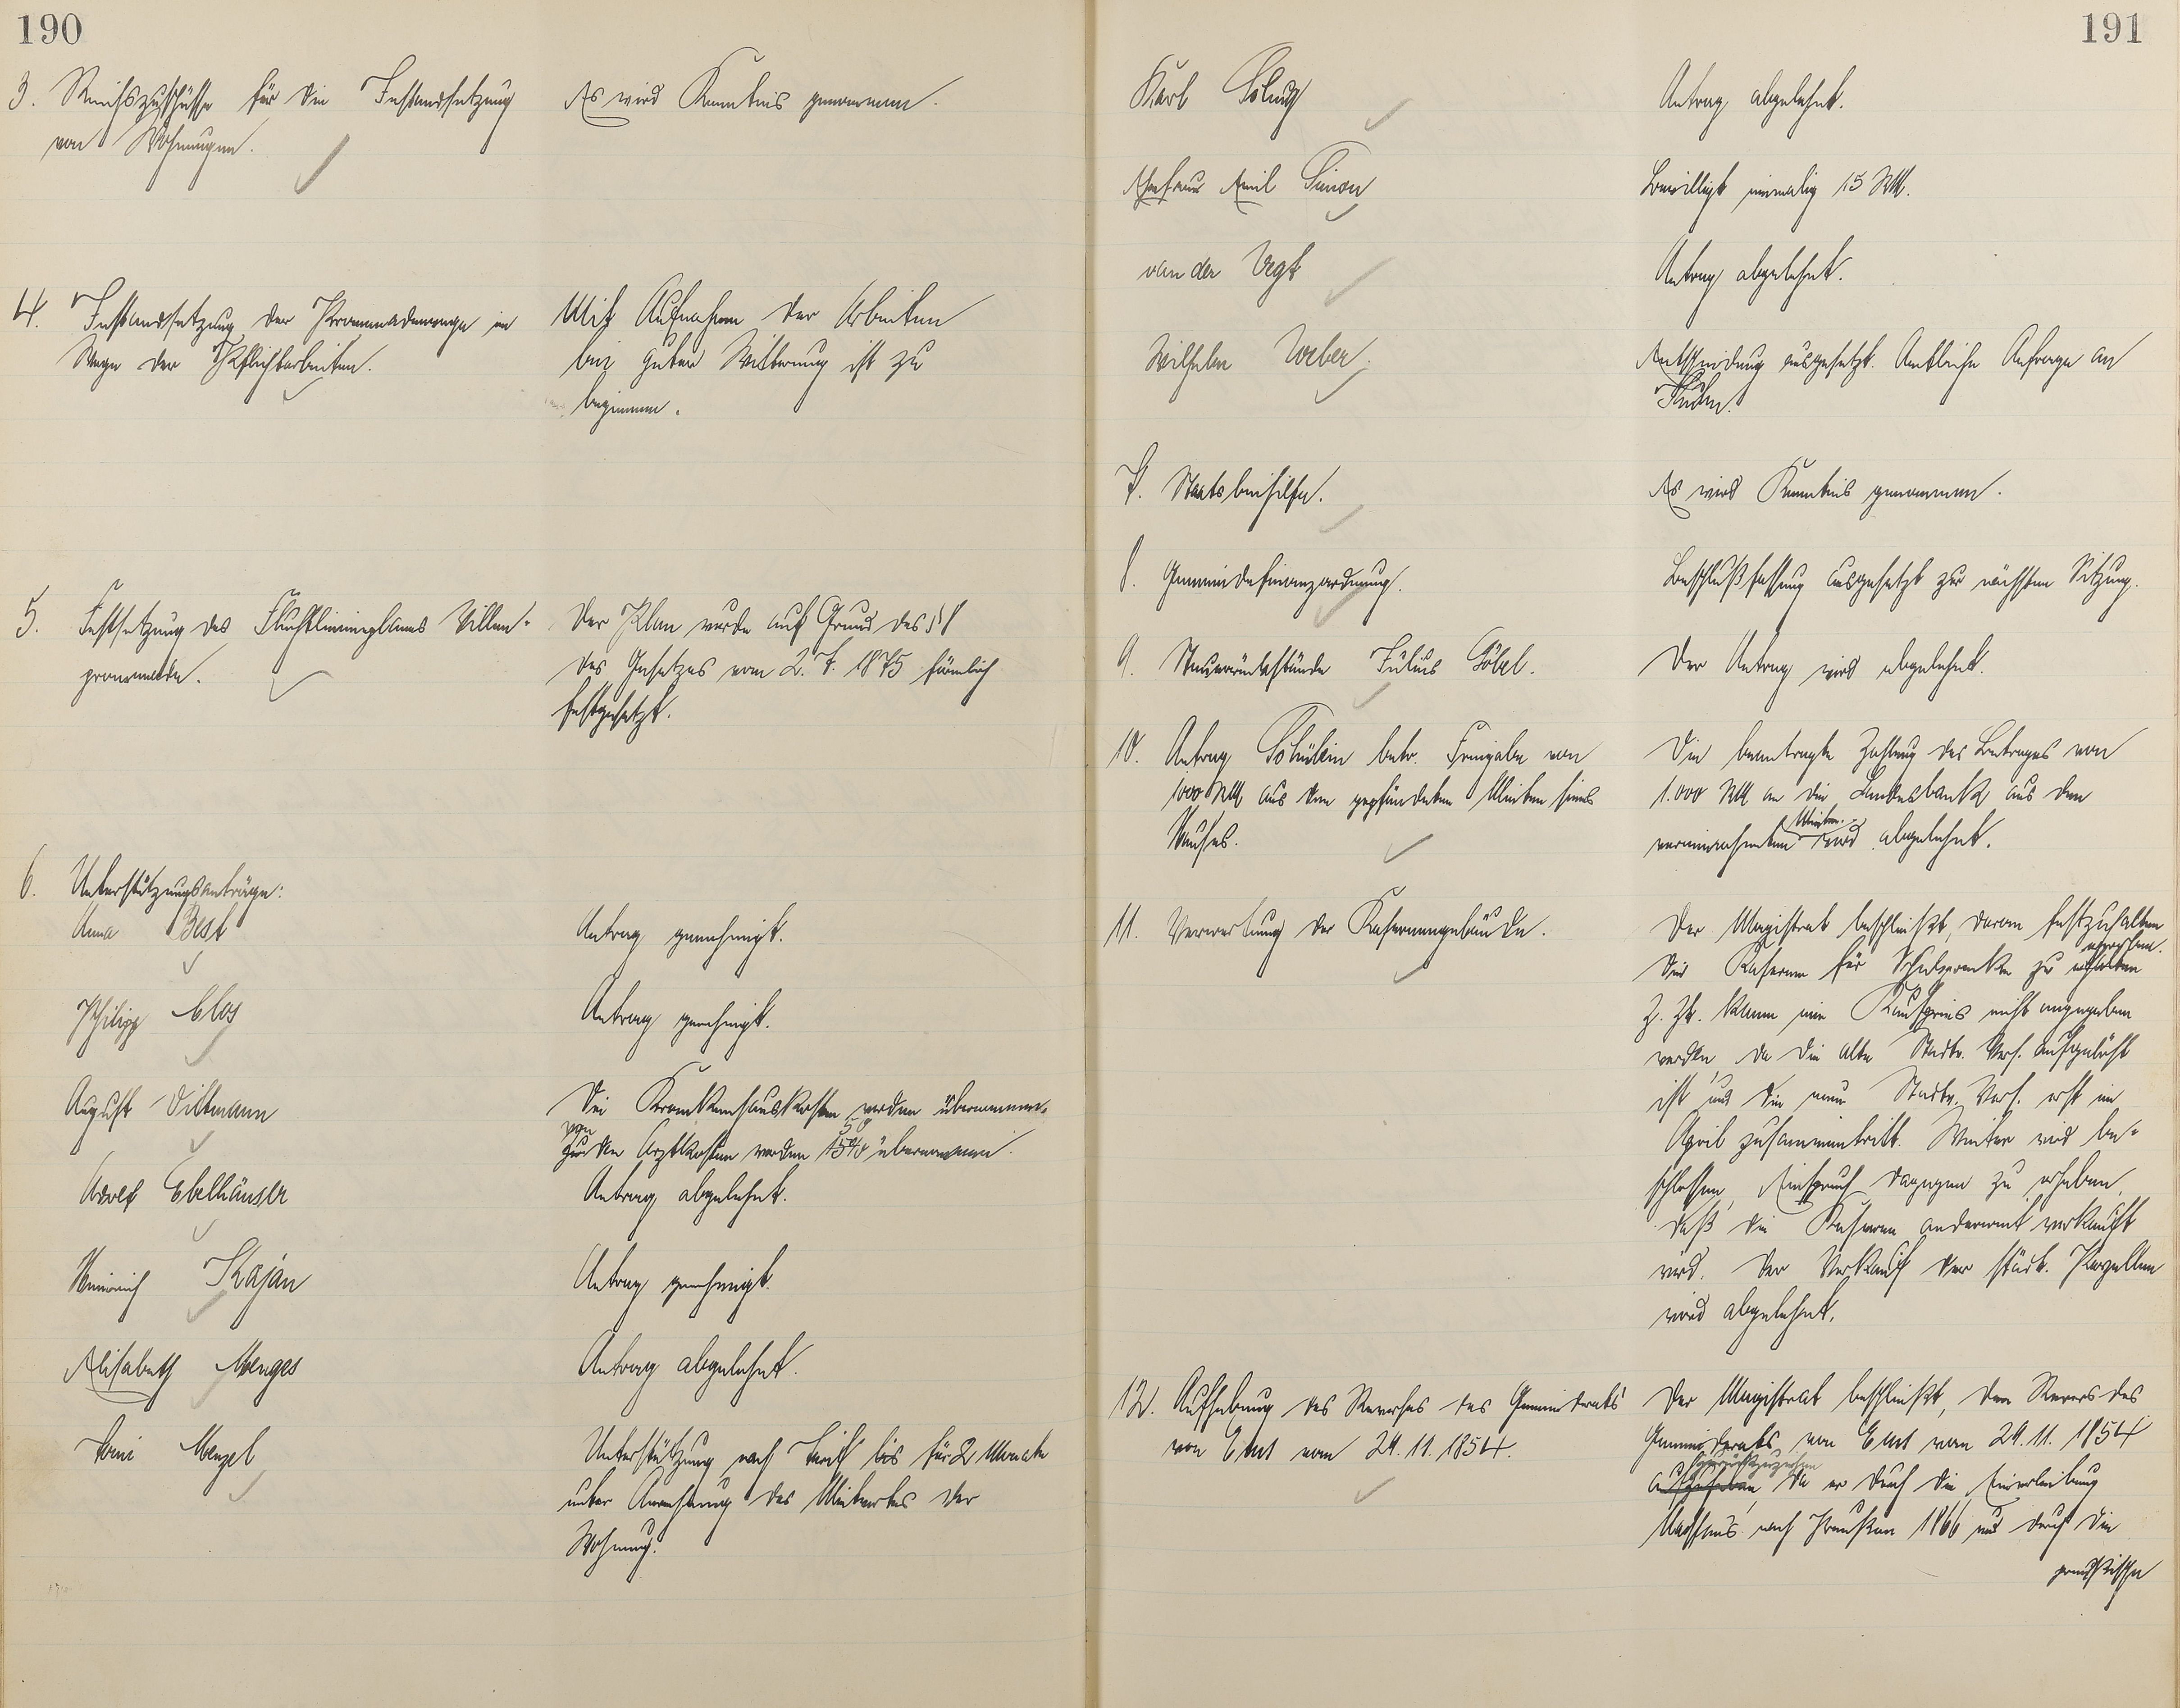 190
3. Reichszuschüsse für die Instandsetzung
von Wohnungen.
Es wird Kenntnis genommen.
4. Instandsetzung der Promenadenwege im
Wege der Pflichtarbeiten.
Mit Aufnahme der Arbeiten
bei guter Witterung ist zu
beginnen.
5. Festsetzung des Fluchtlinienplanes Villen-
promenade.
Der Plan wurde auf Grund des § 8
des Gesetzes vom 2. 7. 1875 förmlich
festgesetzt.
6. Unterstützungsanträge:
Anna Best
Antrag genehmigt.
Philipp Clos
Antrag genehmigt.
August Dittmann
Die Krankenhauskosten werden übernommen.
von
50
Zu den Arztkosten werden 15% übernommen.
Adolf Ebelhäuser
Antrag abgelehnt.
Heinrich Kajan
Antrag genehmigt.
Elisabeth Menges
Antrag abgelehnt.
Menzel
Unterstützung nach Tarif bis für 2 Monate
unter Anrechnung des Mietwertes der
Wohnung.
191
Karl
Antrag abgelehnt.
Ehefrau Emil Simon
Bewilligt einmalig 15 RM.
van der Vegt
Antrag abgelehnt.
Wilhelm Weber.
Entscheidung ausgesetzt. Amtliche Anfrage an
7. Staatsbeihilfe.
Es wird Kenntnis genommen.
8. Gemeindefinanzordnung.
Beschlußfassung ausgesetzt zur nächsten Sitzung.
9. Steuerrückstände Julius Göbel.
Der Antrag wird abgelehnt.
10. Antrag Schülein betr. Freigabe von
1000 RM aus den gepfändeten Mieten seines
Hauses.
Die beantragte Zahlung des Betrages von
1.000 RM an die Landesbank aus den
Mieten
vereinnahmten wird abgelehnt.
11. Verwertung der Kasernengebäude.
Der Magistrat beschließt, daran festzuhalten
die Kaserne für Schulzwecke zu erhalten
Z. Zt. kann ein Kaufpreis nicht angegeben
werden, da die alte Stadtv. Vers. aufgelöst
ist und die neue Stadtv. Vers. erst im
April zusammentritt. Weiter wird be-
schlossen, Einspruch dagegen zu erheben,
daß die Kaserne anderweit verkauft
wird. Der Verkauf der städt. Parzellen
wird abgelehnt.
12. Aufhebung des Reverses des Gemeinderats
von Ems vom 24. 11. 1854.
Der Magistrat beschließt, den Revers des
Gemeinderats von Ems vom 24. 11. 1854
zurückzuziehen
aufzuheben, da er durch die Einverleibung
Nassaus nach Preußen 1866 und durch die
preußische